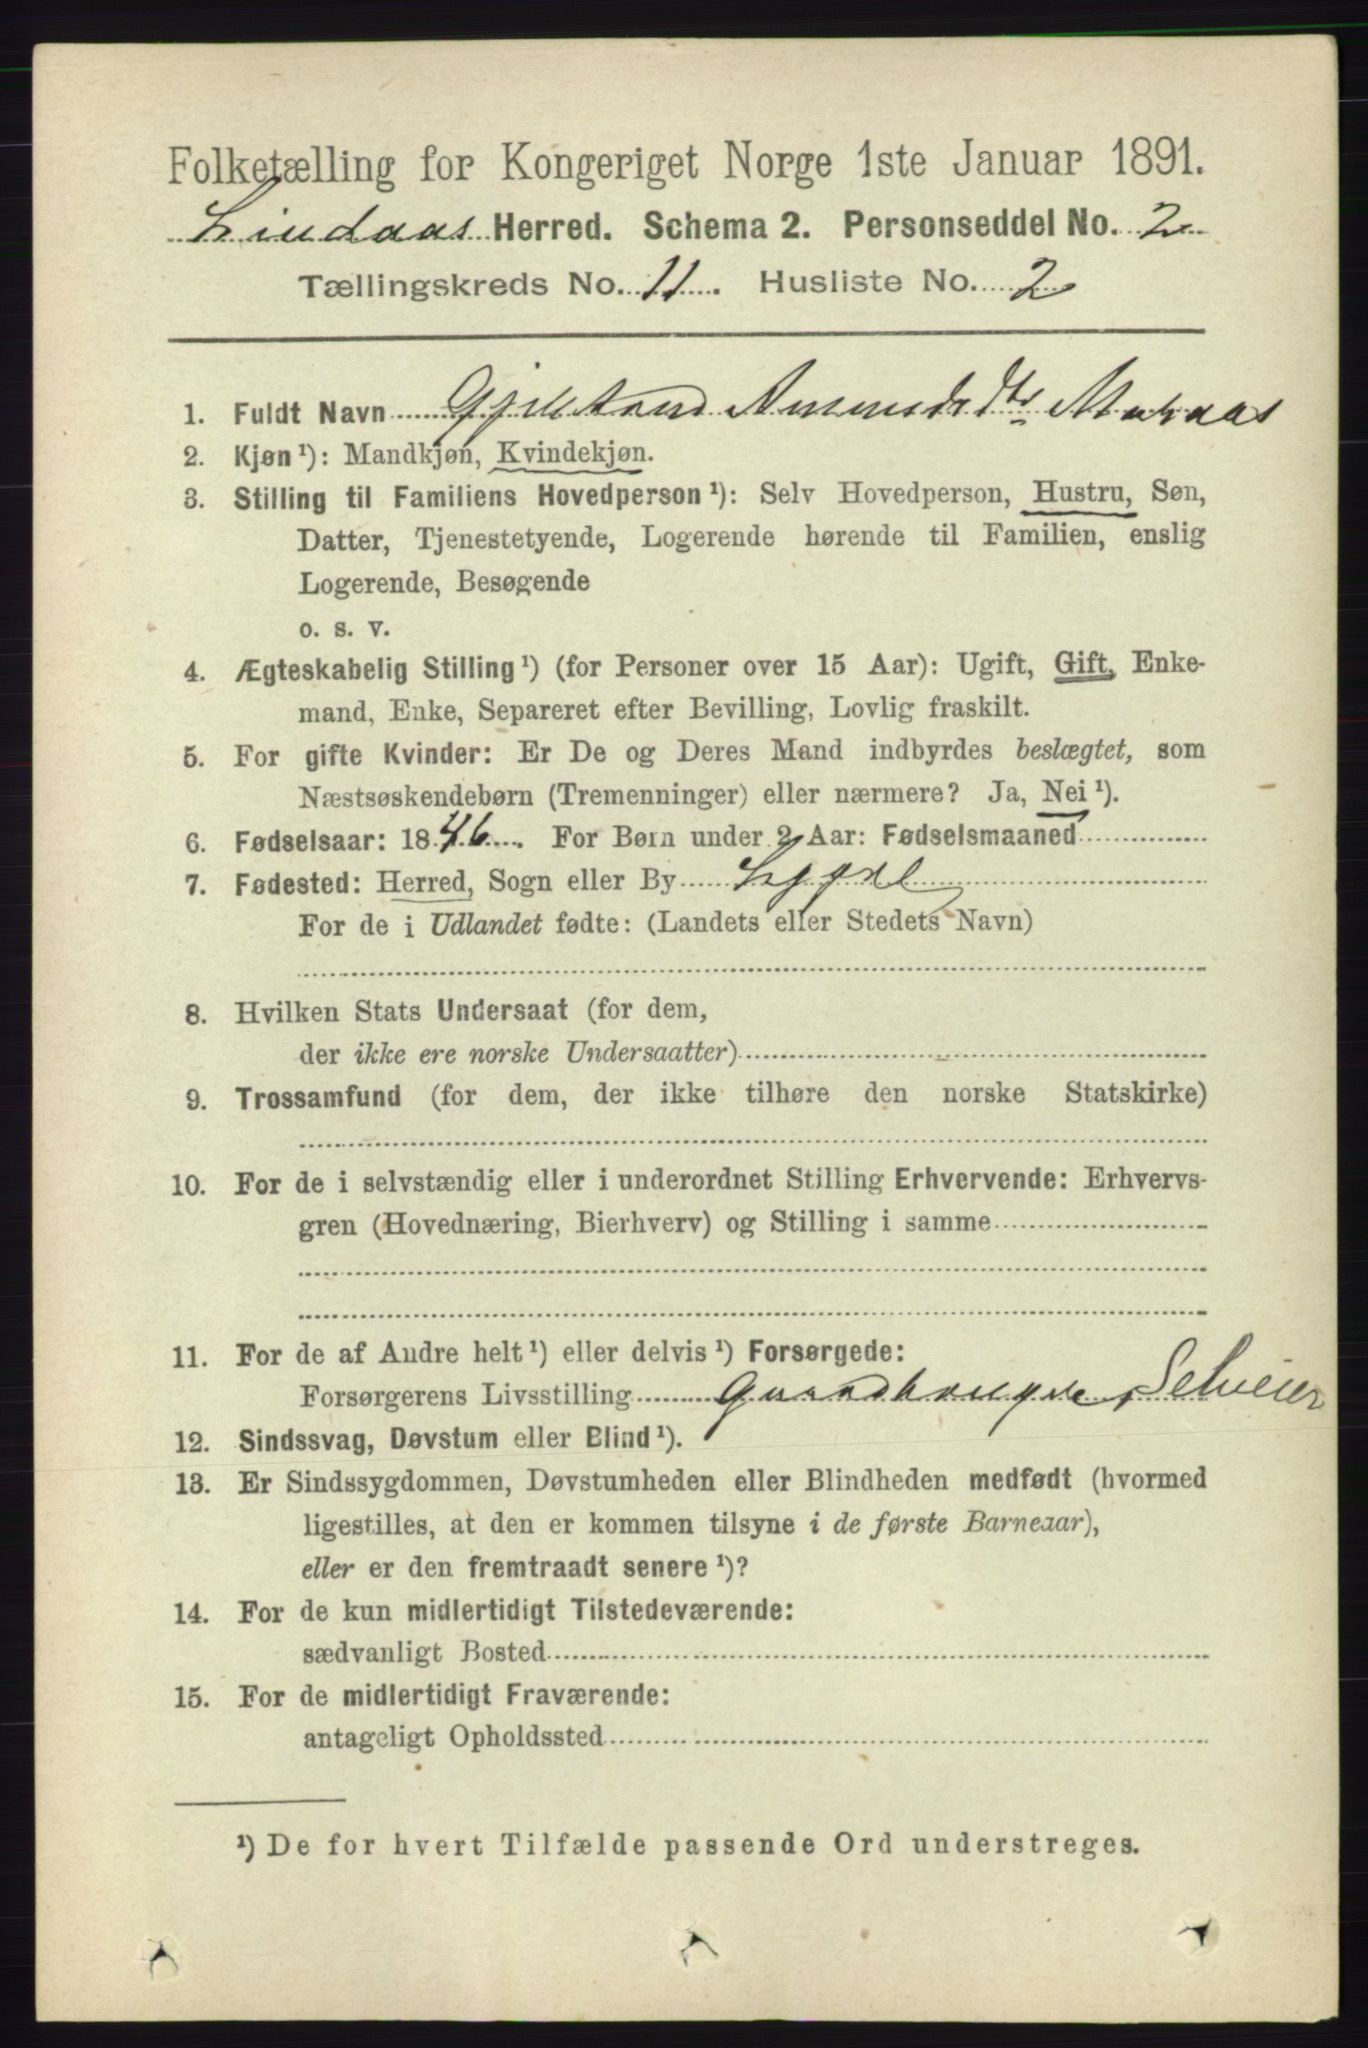 Folketælling for Kongeriget Norge 1ste Januar 1891.
Lindaas Herred. Schema 2. Personseddel No. 2
Tællingskreds No. 11. Husliste No. 2
1. Fuldt Navn
2. Kjøn ¹): Mandkjøn, Kvindekjøn.
3. Stilling til Familiens Hovedperson ¹): Selv Hovedperson, Hustru, Søn,
Datter, Tjenestetyende, Logerende hørende til Familien, enslig
Logerende, Besøgende
o. s. v.
4. Ægteskabelig Stilling ¹) (for Personer over 15 Aar): Ugift, Gift, Enke-
mand, Enke, Separeret efter Bevilling, Lovlig fraskilt.
5. For gifte Kvinder: Er De og Deres Mand indbyrdes beslægtet, som
Næstsøskendebørn (Tremenninger) eller nærmere? Ja, Nei ¹).
6. Fødselsaar: 1846. For Børn under 2 Aar: Fødselsmaaned
7. Fødested: Herred, Sogn eller By
For de i Udlandet fødte: (Landets eller Stedets Navn)
8. Hvilken Stats Undersaat (for dem,
der ikke ere norske Undersaatter)
9. Trossamfund (for dem, der ikke tilhøre den norske Statskirke)
10. For de i selvstændig eller i underordnet Stilling Erhvervende: Erhvervs-
gren (Hovednæring, Bierhverv) og Stilling i samme
11. For de af Andre helt ¹) eller delvis ¹) Forsørgede:
Forsørgerens Livsstilling Selveier
12. Sindssvag, Døvstum eller Blind ¹).
13. Er Sindssygdommen, Døvstumheden eller Blindheden medfødt (hvormed
ligestilles, at den er kommen tilsyne i de første Barneaar),
eller er den fremtraadt senere ¹)?
14. For de kun midlertidigt Tilstedeværende:
sædvanligt Bosted
15. For de midlertidigt Fraværende:
antageligt Opholdssted
¹) De for hvert Tilfælde passende Ord understreges.